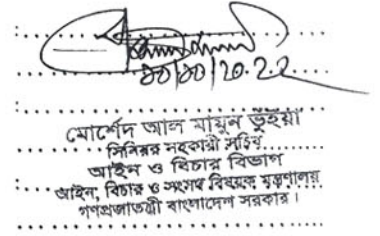 ১০/১০/২০২২
মোর্শেদ আল মামুন ভুঁইয়া
সিনিয়র সহকারী সচিব
আইন ও বিচার বিভাগ
আইন, বিচার ও সংসদ বিষয়ক মন্ত্রণালয়
গণপ্রজাতন্ত্রী বাংলাদেশ সরকার।